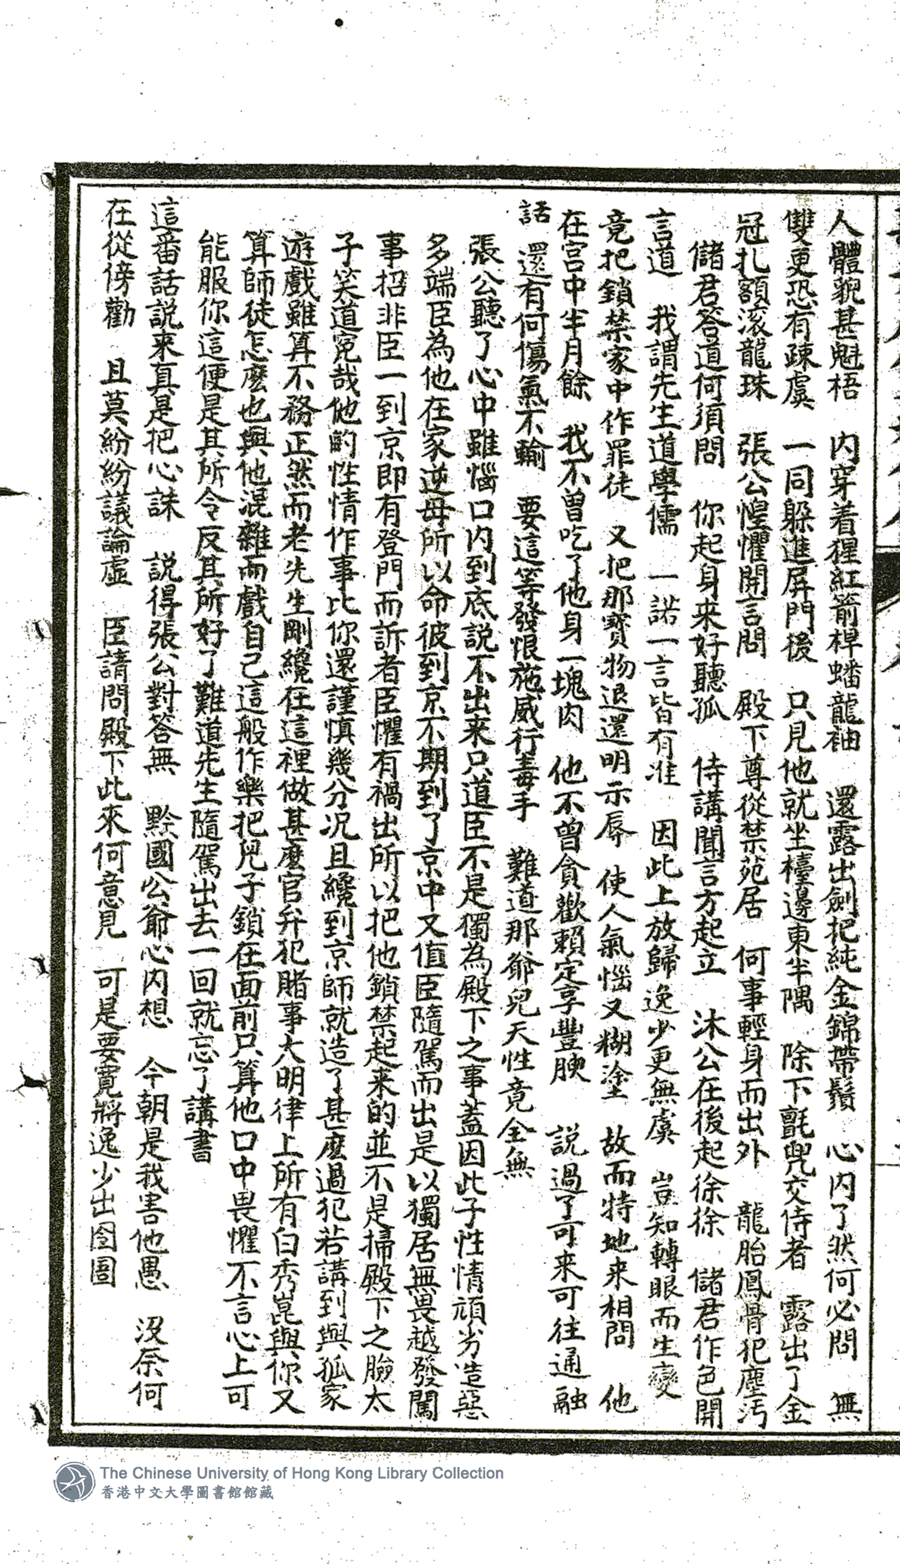 人體貌甚魁梧　內穿着猩紅箭桿蟠龍袖　還露出劍把純金錦帶鬚　心內了然何必問　無
雙更恐有疎虞　一同躲進屏門後　只見他就坐檯邊東半隅　除下氈兜交侍者　露出了金
冠扎額滚龍珠　張公惶懼開言問　殿下尊從禁苑居　何事輕身而出外　龍胎鳳骨犯塵汚
儲君答道何須問　你起身来好聽孤　侍講聞言方起立　沐公在後起徐徐　儲君作色開
言道　我謂先生道學儒　一諾一言皆有准　因此上放歸逸少更無虞　豈知轉眼而生變
竟把鎖禁家中作罪徒　又把那寶物退還明示辱　使人氣惱又糊塗　故而特地来相問　他
在宫中半月餘　我不曾吃了他身一塊肉　他不曾貪歡賴定享豐腴　說過了可来可往通融
話　還有何傷氣不輸　要這等發恨施威行毒手　難道那爺兒天性竟全無
張公聽了心中雖惱口內到底說不出来只道臣不是獨為殿下之事蓋因此子性情頑劣造惡
多端臣為他在家逆母所以命彼到京不期到了京中又值臣隨駕而出是以獨居無畏越發闖
事招非臣一到京即有登門而訴者臣懼有禍出所以把他鎖禁起来的並不是掃殿下之臉太
子笑道寃哉他的性情作事比你還謹慎幾分况且纔到京師就造了甚麽過犯若講到與孤家
遊戲雖算不務正然而老先生剛纔在這裡做甚麽官弁犯賭事大明律上所有白秀崑與你又
算師徒怎麽也與他混雜而戲自己這般作樂把兒子鎖在面前只算他口中畏懼不言心上可
能服你這便是其所令反其所好了難道先生隨駕出去一回就忘了講書
這番話說来真是把心誅　說得張公對答無　黔國公爺心內想　今朝是我害他愚　沒奈何
在從傍勸　且莫紛紛議論虛　臣請問殿下此來何意見　可是要寬將逸少出囹圄
The Chinese University of Hong Kong Library Collection
香港中文大學圖書館館藏